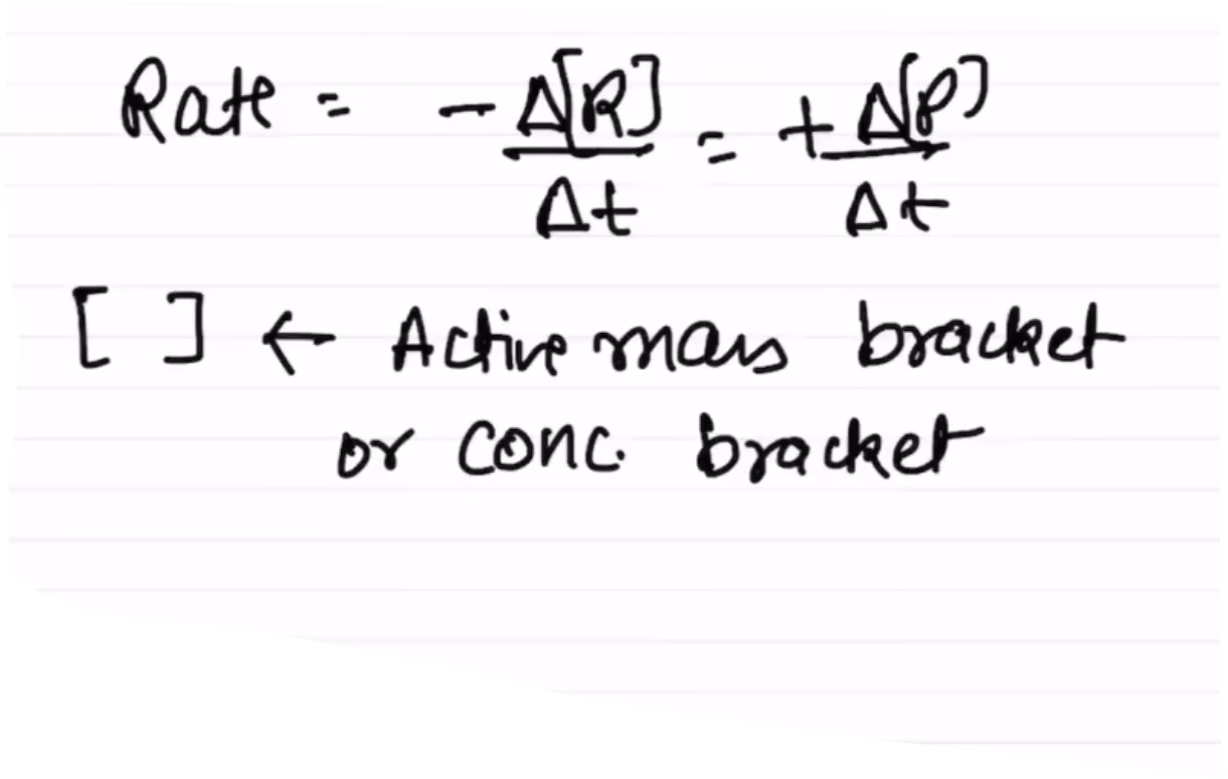 Rate = -Δ[R]/Δt = +Δ[P]/Δt
[ ] ← Active mass bracket
or conc. bracket